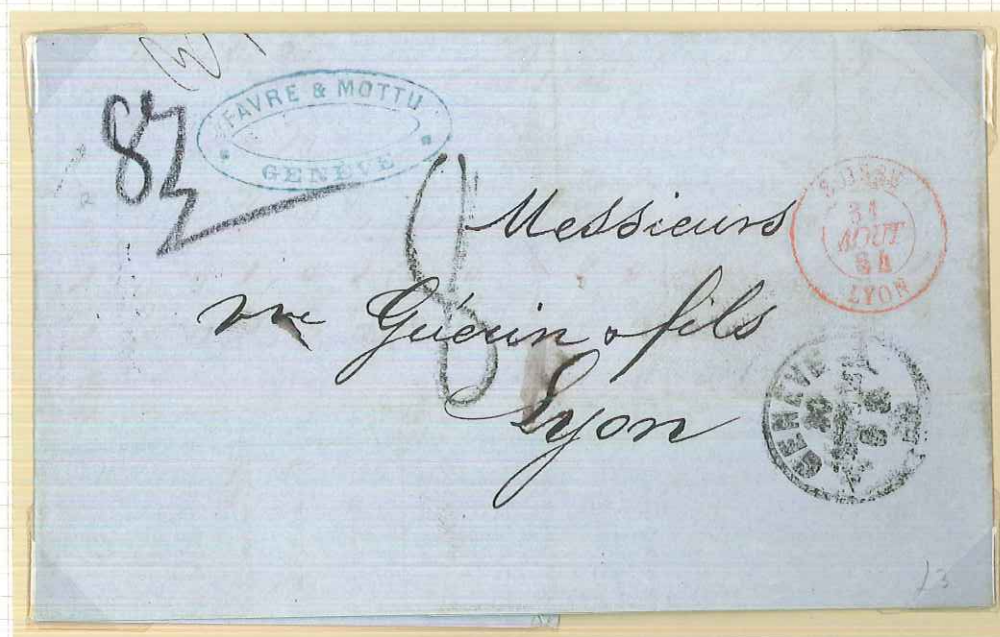 FAVRE & MOTTU
GENÈVE
82
8
Messieurs
vve Guérin & fils
Lyon
SUISSE
31
AOUT
64
LYON
GENÈVE
13